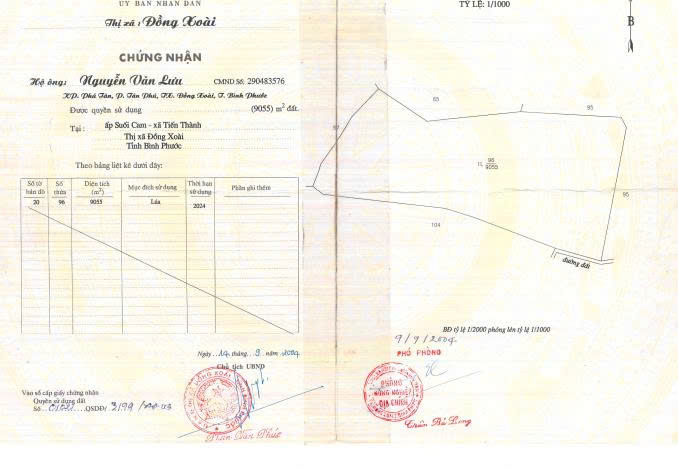 ỦY BAN NHÂN DÂN
Thị xã : Đồng Xoài
CHỨNG NHẬN
Hộ ông: Nguyễn Văn Lưu CMND Số: 290483576
KP. Phú Tân, P. Tân Phú, TX. Đồng Xoài, T. Bình Phước
Được quyền sử dụng (9055) m² đất.
Tại : ấp Suối Cam - xã Tiến Thành
Thị xã Đồng Xoài
Tỉnh Bình Phước
Theo bảng liệt kê dưới đây:
Số tờ bản đồ Số thửa Diện tích (m²) Mục đích sử dụng Thời hạn sử dụng Phần ghi thêm
20 96 9055 Lúa 2024
Ngày 14 tháng 9 năm 2004
Chủ tịch UBND
Phan Văn Phúc
Vào sổ cấp giấy chứng nhận
Quyền sử dụng đất
Số QSDĐ/ 3199
TỶ LỆ: 1/1000
B
65
95
97
96
9055
95
104
đường đất
BĐ tỷ lệ 1/2000 phóng lên tỷ lệ 1/1000
9/9/2004
PHÓ PHÒNG
PHÒNG
NÔNG NGHIỆP
ĐỊA CHÍNH
Trần Bá Long